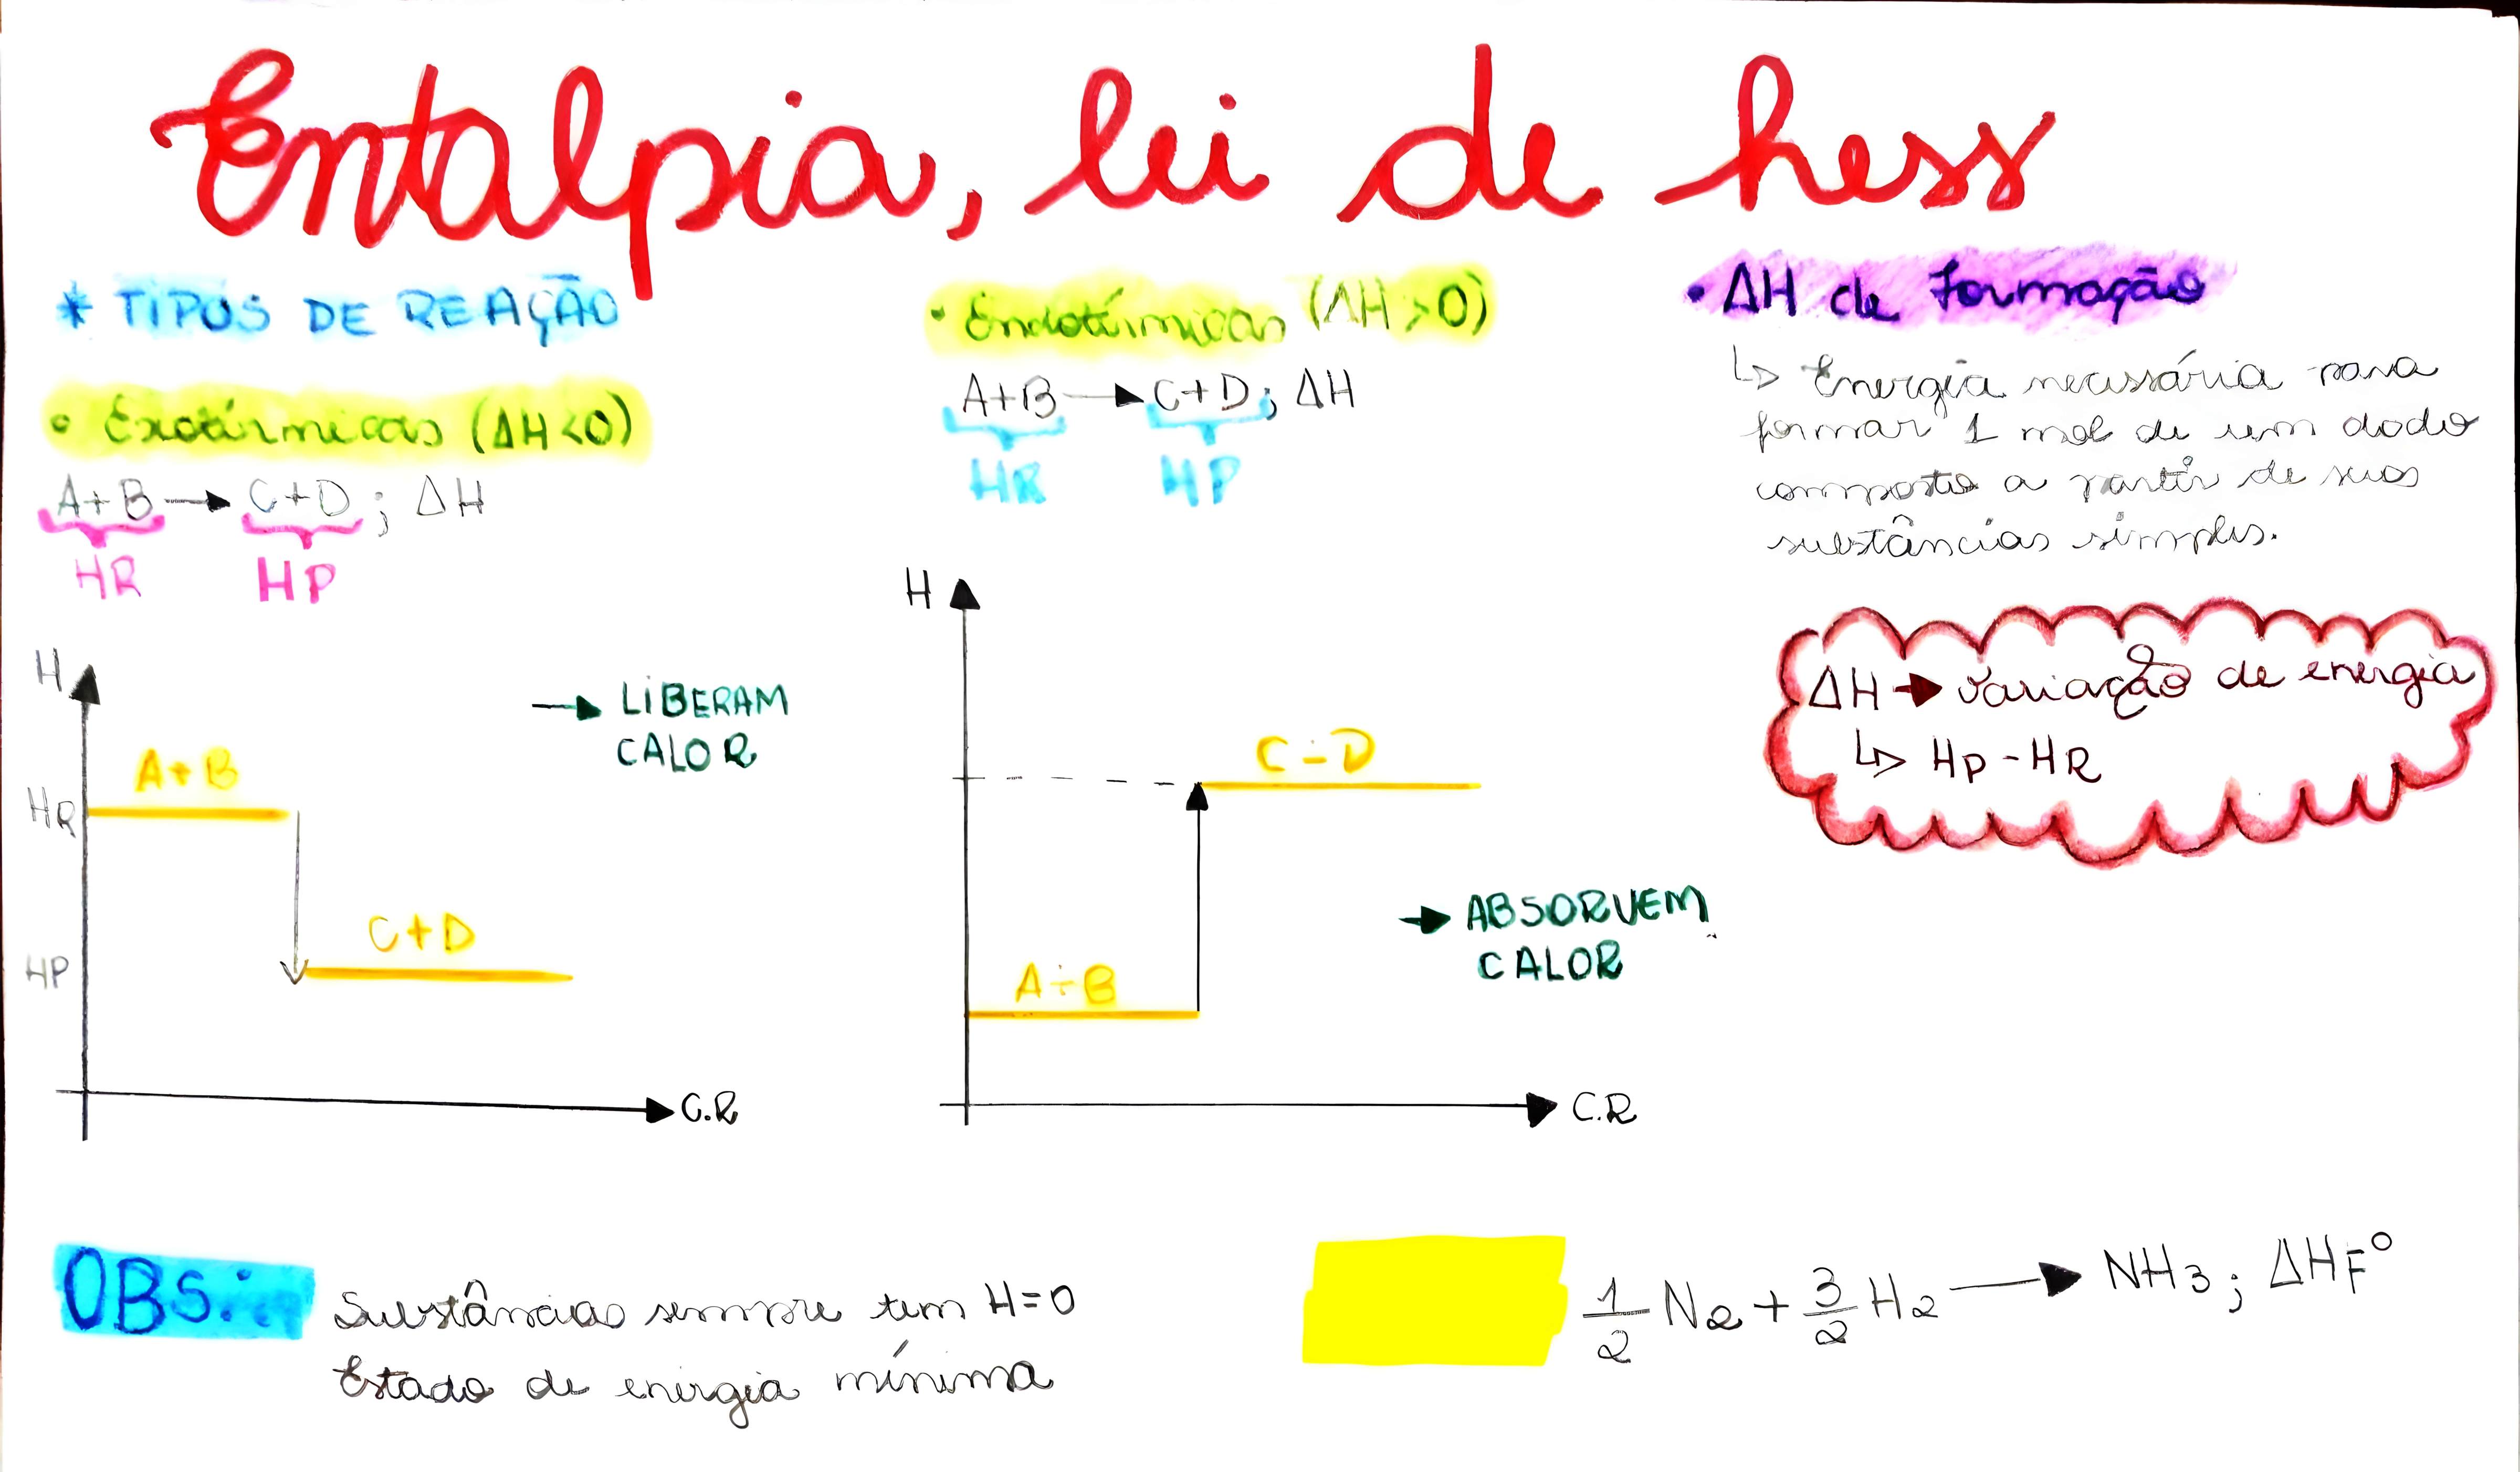 Entalpia, lei de hess
* TIPOS DE REAÇÃO
• Exotérmicas (ΔH<0)
A+B → C+D ; ΔH
HR HP
H
→ LIBERAM
CALOR
A+B
HR
C+D
HP
C.R
• Endotérmicas (ΔH>0)
A+B → C+D ; ΔH
HR HP
H
C+D
→ ABSORVEM
CALOR
A+B
C.R
• ΔH de Formação
↳ Energia necessária para
formar 1 mol de um dado
composto a partir de suas
substâncias simples.
ΔH → variação de energia
↳ HP - HR
OBS: Substâncias sempre tem H=0
Estado de energia mínima
1/2 N2 + 3/2 H2 → NH3 ; ΔHF°